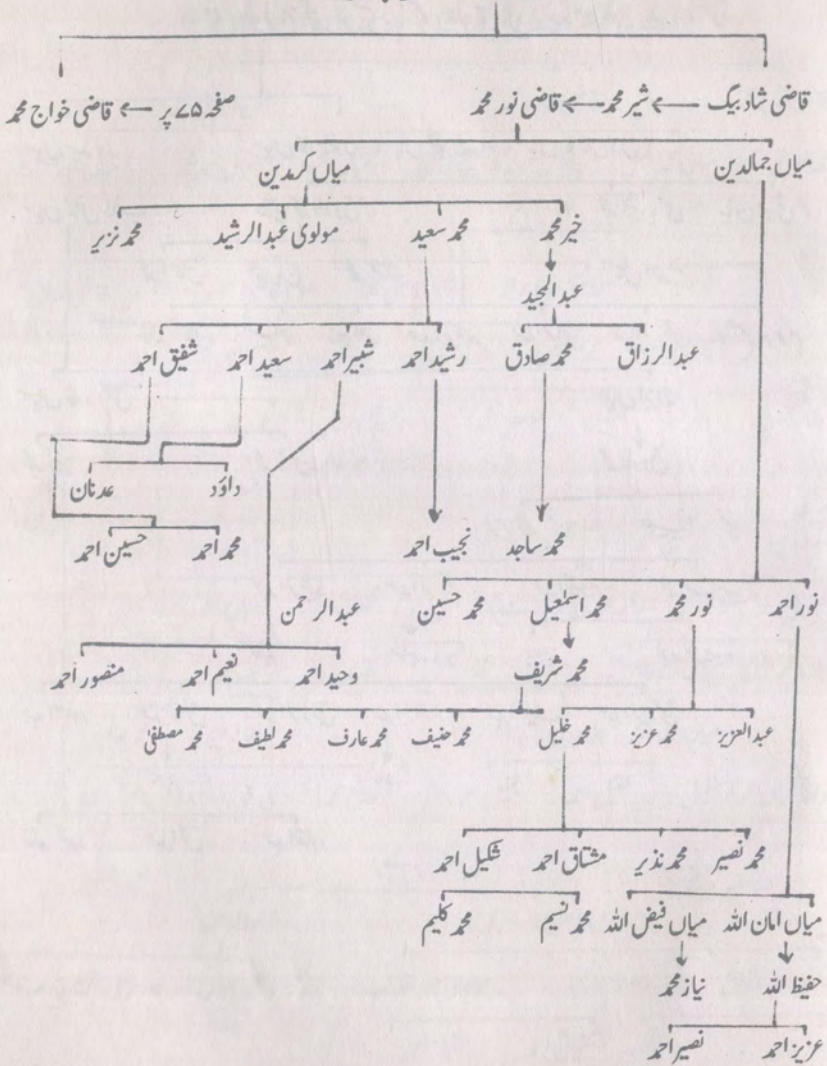 قاضی شادبیگ ← شیر محمد ← قاضی نور محمد صفحہ ۷۵ پر ← قاضی خواج محمد
میاں جمالدین میاں کرمدین
خیر محمد محمد سعید مولوی عبد الرشید محمد نزیر
عبد المجید
عبد الرزاق محمد صادق رشید احمد شبیر احمد سعید احمد شفیق احمد
داؤد عدنان
محمد ساجد نجیب احمد محمد احمد حسین احمد
نور احمد نور محمد محمد اسمٰعیل محمد حسین عبد الرحمن
محمد شریف وحید احمد نعیم احمد منصور احمد
عبد العزیز محمد عزیز محمد خلیل محمد حنیف محمد عارف محمد لطیف محمد مصطفیٰ
محمد نصیر محمد نذیر مشتاق احمد شکیل احمد
میاں امان اللہ میاں فیض اللہ محمد نسیم محمد کلیم
حفیظ اللہ نیاز محمد
عزیز احمد نصیر احمد